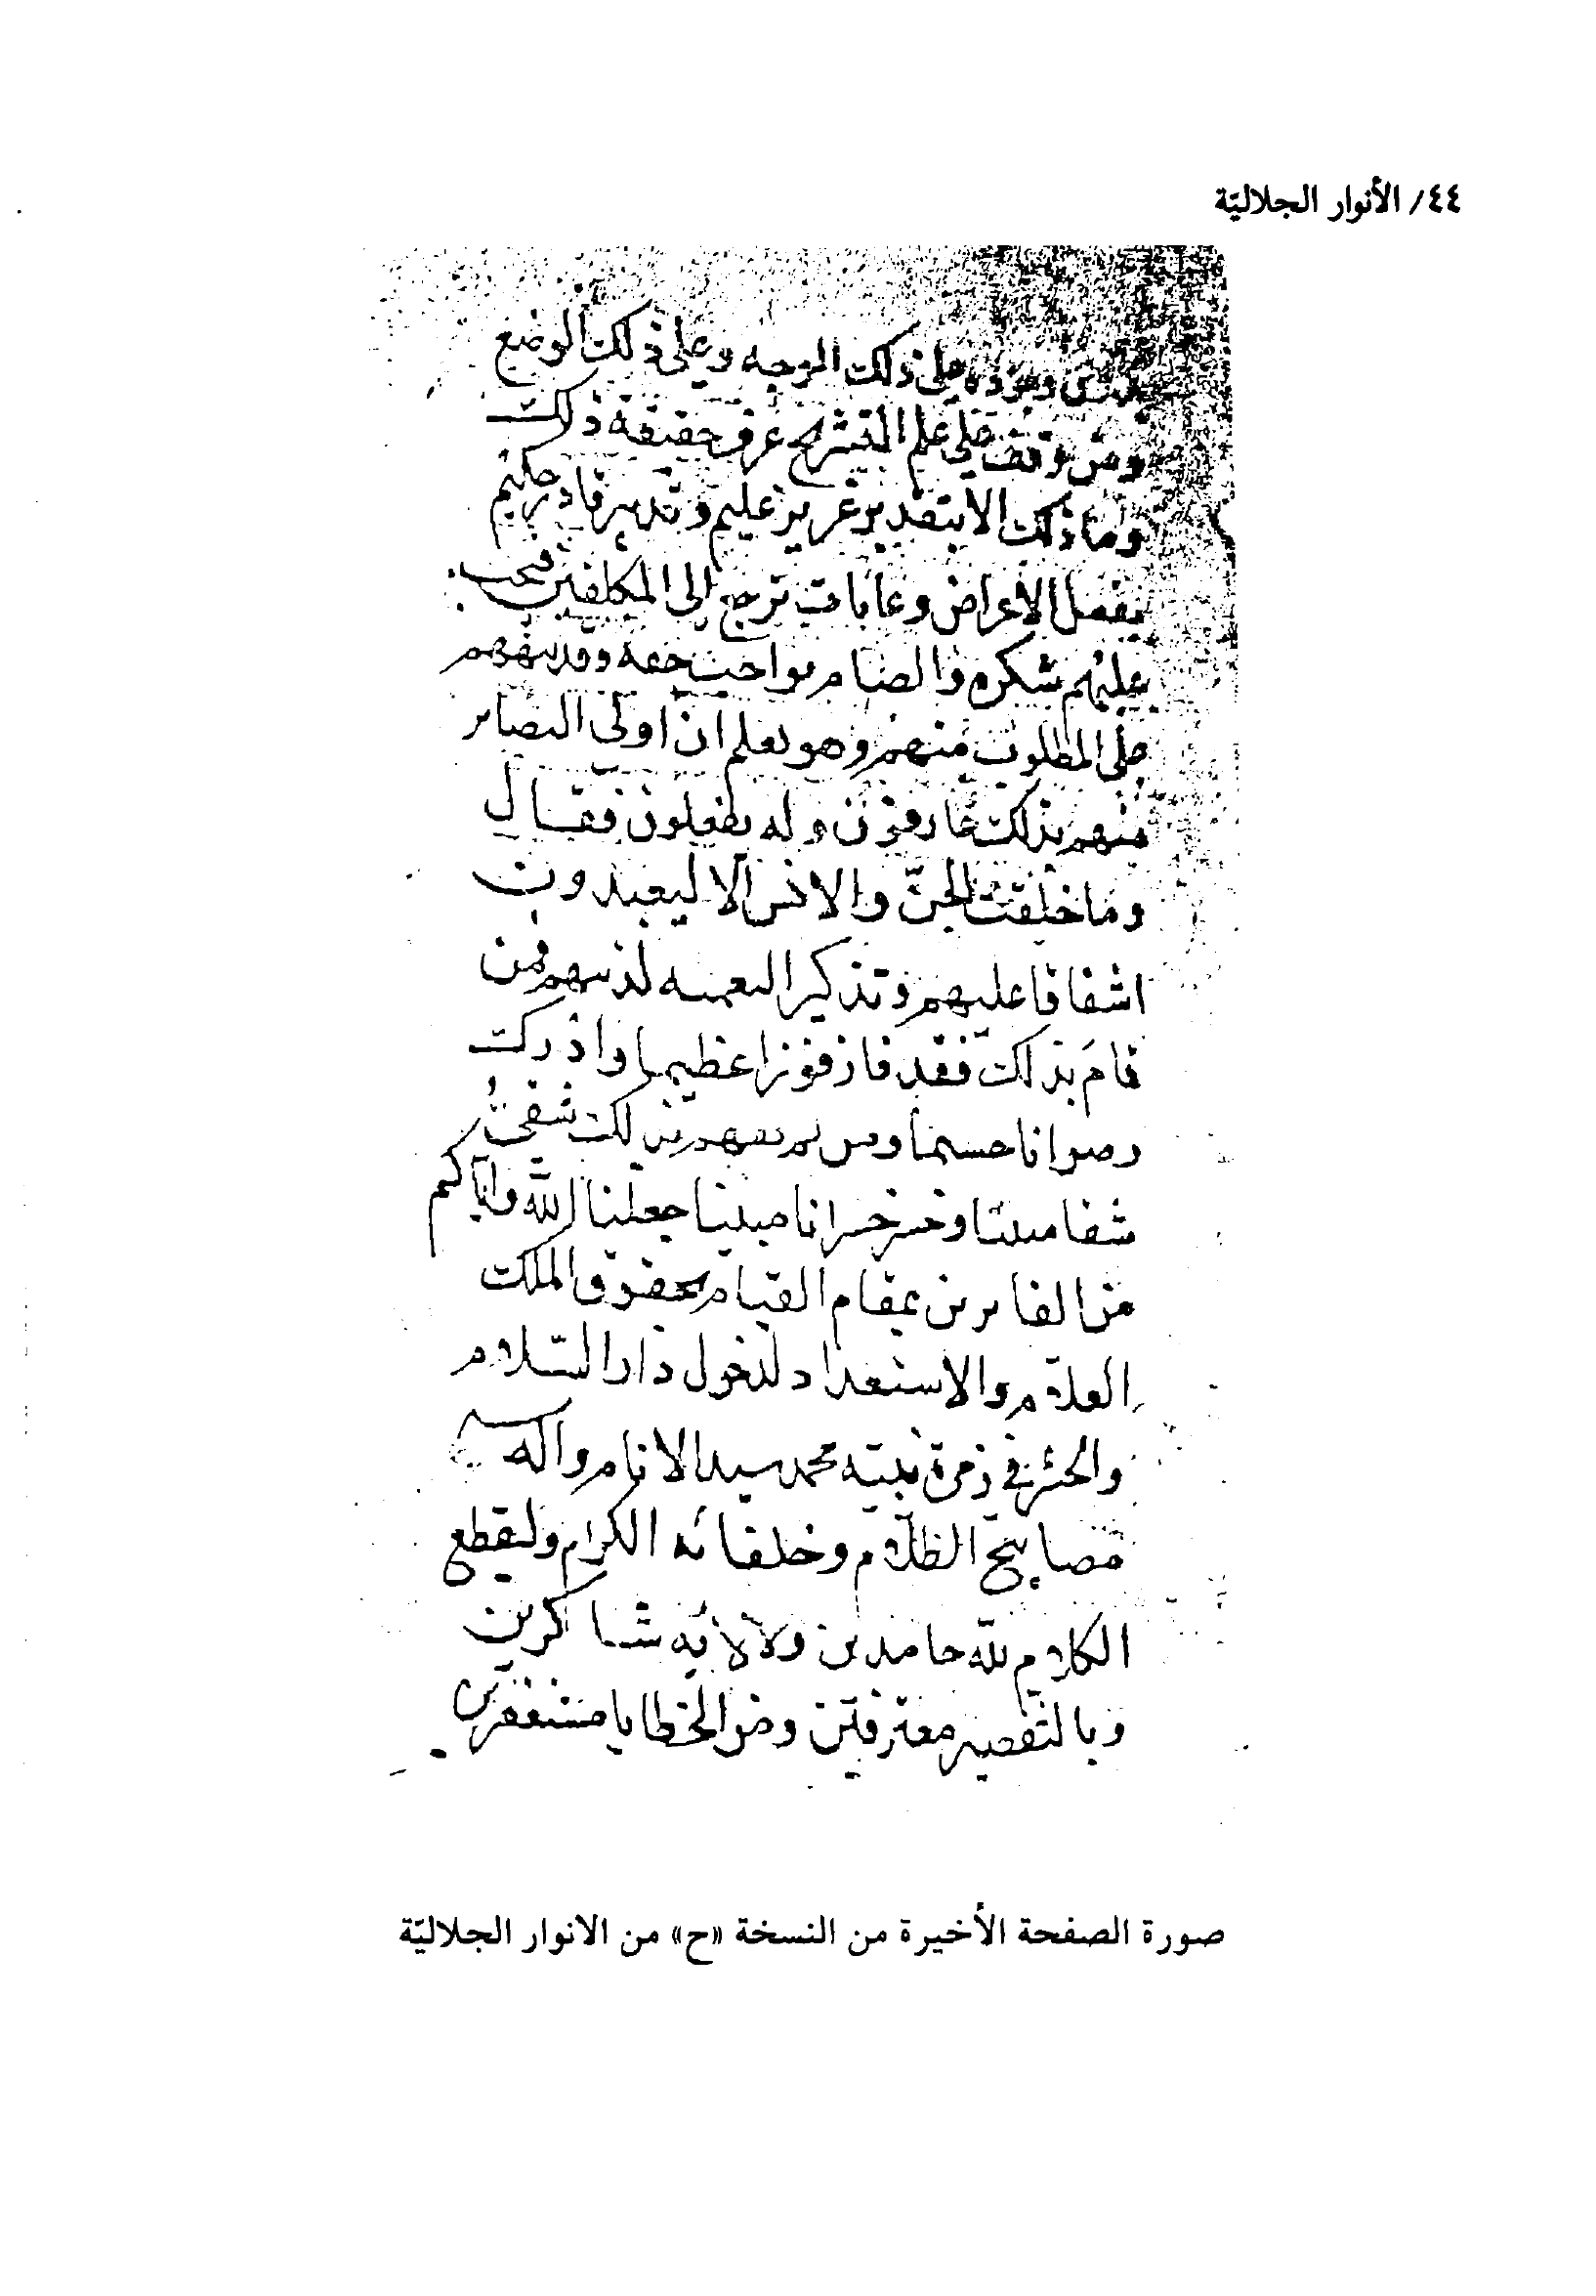 ٤٤/ الأنوار الجلاليّة
وجوده على ذلك الوجه وعلى ذلك الوضع
ومن وقف على علم التشريح عرف حقيقة ذلك
وما ذلك الا بتقدير عزيز عليم وتدبير قادر حكيم
يفعل الأغراض وغايات ترجع الى المكلفين فيجب
عليهم شكره والقيام بواجب حقه وقد نبههم
على المطلوب منهم وهو يعلم ان اولى البصاير
منهم بذلك عارفون وله يفعلون فقال
وما خلقت الجنّ والانس الا ليعبدون
اشفاقا عليهم وتذكيرا لنعمه لديهم فمن
قام بذلك فقد فاز فوزا عظيما وادرك
رضوانا جسيما ومن لم يقم بذلك شقى
شقا مبينا وخسر خسرانا مبينا جعلنا الله واياكم
من الفايزين بمقام القيام بحقوق الملك
العلام والاستعداد لدخول دار السّلام
والحشر فى زمرة نبيّه محمد سيد الانام وآله
مصابيح الظلام وخلفائه الكرام وليقطع
الكلام لله حامدين ولآلائه شاكرين
وبالتقصير معترفين ومن الخطايا مستغفرين
صورة الصفحة الأخيرة من النسخة «ح» من الانوار الجلاليّة